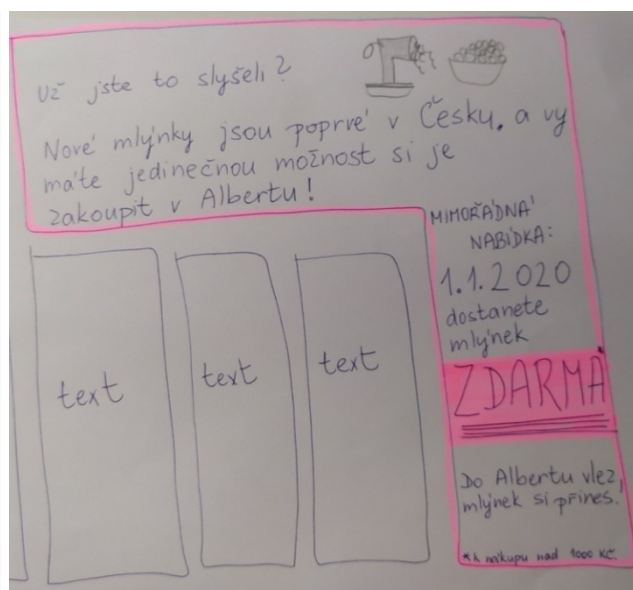 Už jste to slyšeli?
Nové mlýnky jsou poprvé v Česku. a vy
máte jedinečnou možnost si je
zakoupit v Albertu!
MIMOŘÁDNÁ
NABÍDKA:
1.1.2020
dostanete
mlýnek
ZDARMA
Do Albertu vlez,
mlýnek si přines!
*k nákupu nad 1000 Kč.
text
text
text